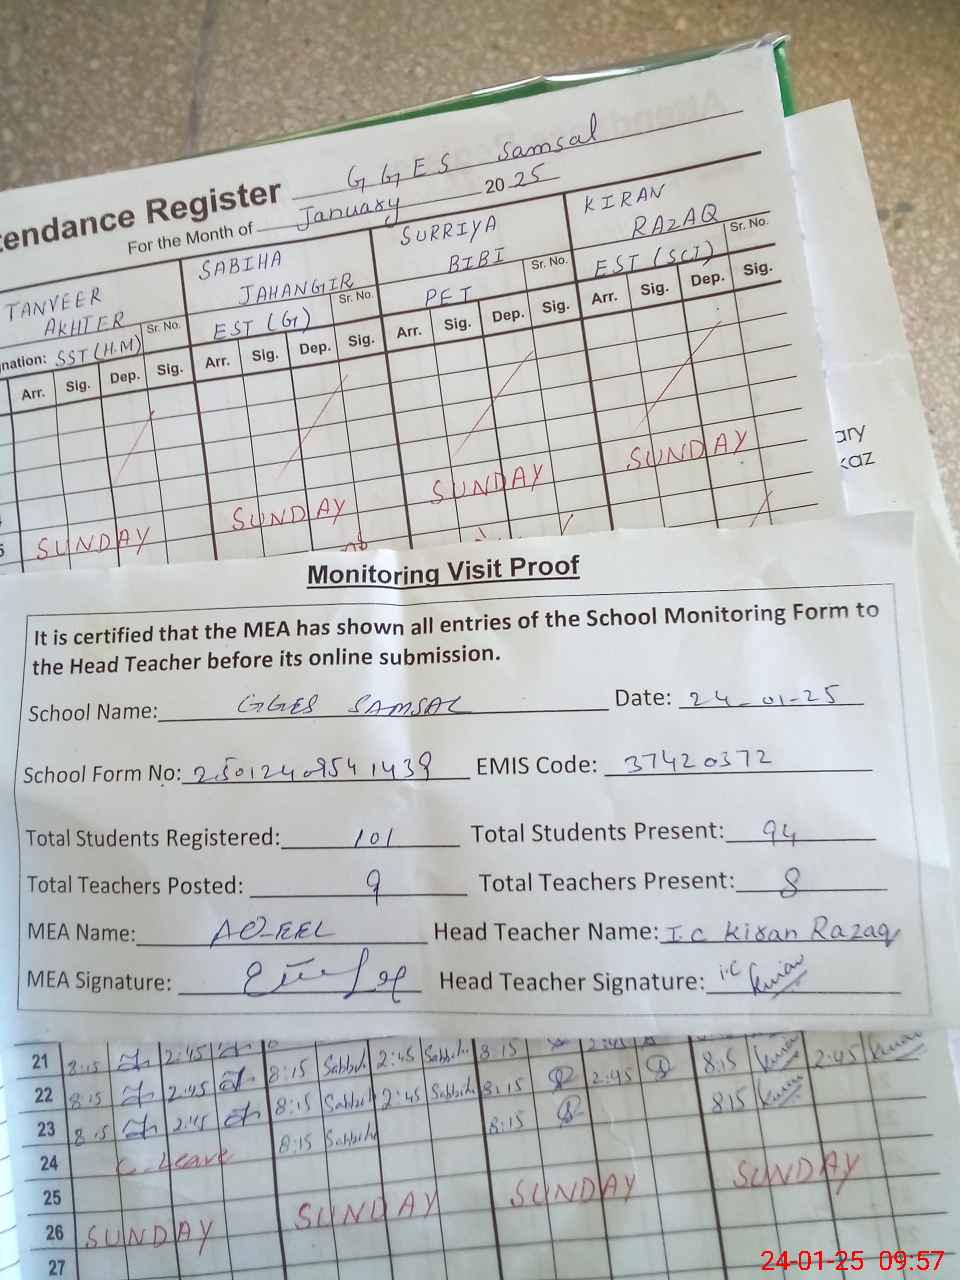 tendance Register GGES Samsal
For the Month of January 2025
TANVEER AKHTER Sr. No.
nation: SST (H.M)
SABIHA JAHANGIR Sr. No.
EST (G)
SURRIYA BIBI Sr. No.
PET
KIRAN RAZAQ Sr. No.
EST (SCI)
Arr. Sig. Dep. Sig. Arr. Sig. Dep. Sig. Arr. Sig. Dep. Sig. Arr. Sig. Dep. Sig.
5 SUNDAY SUNDAY SUNDAY SUNDAY
ary
kaz
Monitoring Visit Proof
It is certified that the MEA has shown all entries of the School Monitoring Form to
the Head Teacher before its online submission.
School Name: GGES SAMSAL Date: 24-01-25
School Form No: 25012409541439 EMIS Code: 37420372
Total Students Registered: 101 Total Students Present: 94
Total Teachers Posted: 9 Total Teachers Present: 8
MEA Name: AQEEL Head Teacher Name: I.C Kiran Razaq
MEA Signature: Head Teacher Signature: i.c Kiran
21 8:15 2:45 8:15 Sabbiha 2:45 Sabbiha 8:15 2:45 8:15 Kiran 2:45 Kiran
22 8:15 2:45 8:15 Sabbiha 2:45 Sabbiha 8:15 2:45 8:15 Kiran
23 8:15 2:45 8:15 Sabbiha 8:15
24 C-Leave
25
26 SUNDAY SUNDAY SUNDAY SUNDAY
27
24-01-25 09:57